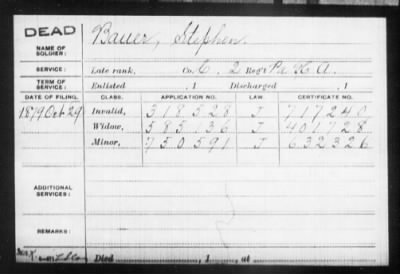 DEAD
NAME OF SOLDIER: Bauer, Stephen.
SERVICE: Late rank, Co. C, 2 Reg't Pa H A.
TERM OF SERVICE: Enlisted , 1 Discharged , 1
DATE OF FILING. CLASS. APPLICATION NO. LAW. CERTIFICATE NO.
1879 Oct 29 Invalid, 318528 J 717240
Widow, 585136 J 401728
Minor, 750591 J 632326
ADDITIONAL SERVICES:
REMARKS:
Died , 1 , at